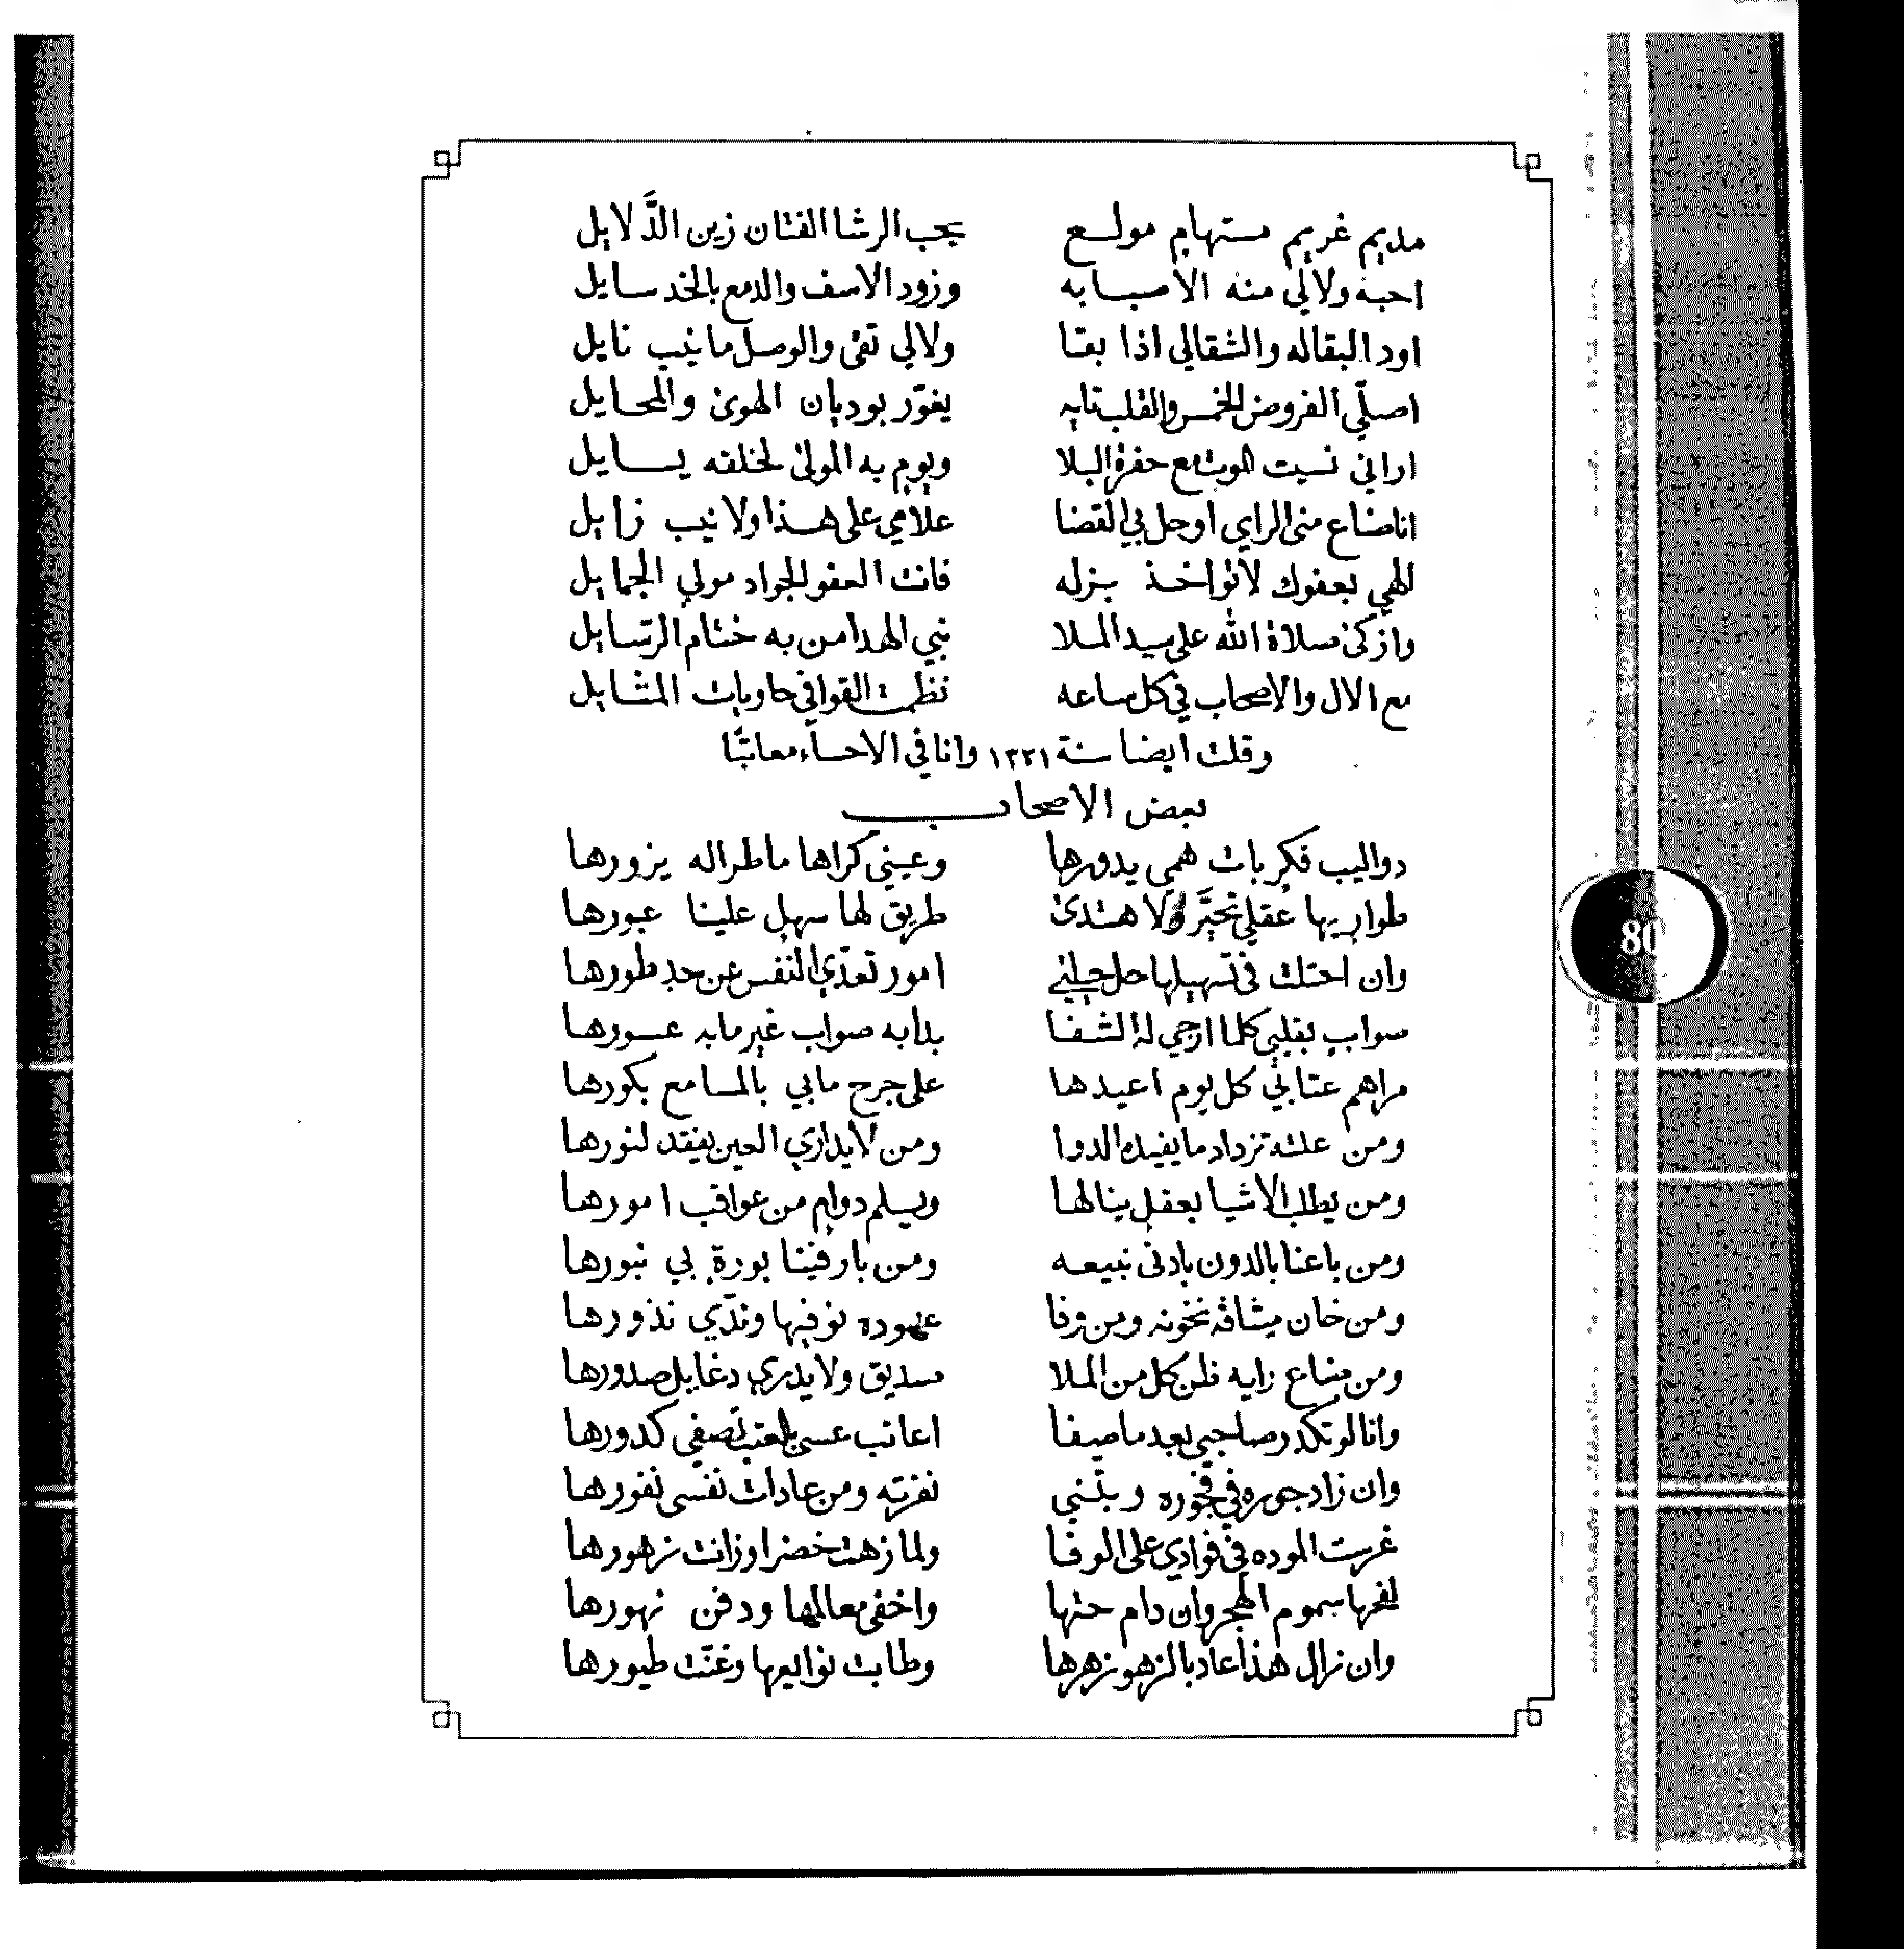 مديم غريم مستهام مولع يحب الرشا الفتان زين الدَّلايل
احبه ولالي منه الا صبابه وزود الاسف والدمع بالخد سايل
اود البقاله والشقالي اذا بقا ولالي تقى والوصل مانيب نايل
اصلّي الفروض الخمس والقلب تايه يفوّر بوديان الهوى والمحايل
اراني نسيت الموت مع حفرة البلا ويوم به المولى لخلقه يسايل
انا ضاع منى الراي اوحل بي القضا علامي على هذا ولا نيب زايل
الهي بعفوك لا تواخذ بزله فانت العفو الجواد مولي الجمايل
وازكى صلاة الله على سيد الملا نبي الهدا من به ختام الرسايل
مع الال والاصحاب في كل ساعه نظمت القوافي حاويات المثايل
وقلت ايضا سنة ١٣٣١ وانا في الاحساء معاتبًا
بعض الاصحاب
دواليب فكر بات همي يدورها وعيني كراها ما طراله يزورها
طواريها عقلي تحيَّر ولا هتدى طريق لها سهل علينا عبورها
وان احتلت في تسهيلها حل حيلتي امور تعدّي النفس عن حد طورها
صواب بقلبي كلما ارجي له الشفا بدابه صواب غير مابه عسورها
مراهم عتابي كل يوم اعيدها على جرح مابي بالمسامع بكورها
ومن علته تزداد ما يفيد الدوا ومن لا يداري العين يفقد لنورها
ومن يطلب الاشيا بعقل ينالها ويسلم دوام من عواقب امورها
ومن باعنا بالدون بادنى نبيعه ومن بار فينا بورة بي نبورها
ومن خان ميثاقه نخونه ومن وفا عهوده نوفيها وندّي نذورها
ومن ضاع رايه ظن كل من الملا صديق ولا يدري دغايل صدورها
وانا لو تكدر صاحبي بعد ما صفا اعاتب عسى بالعتب تصفي كدورها
وان زاد جوره في فجوره وبتّني نفرته ومن عادات نفسى نفورها
غرست الموده في فوادي على الوفا ولما زهت خضرا وزانت زهورها
لفحها سموم الهجر وان دام حثها واخفى معالمها ودفن نهورها
وان زال هذا عاد بالزهو زهرها وطابت نوايعها وغنّت طيورها